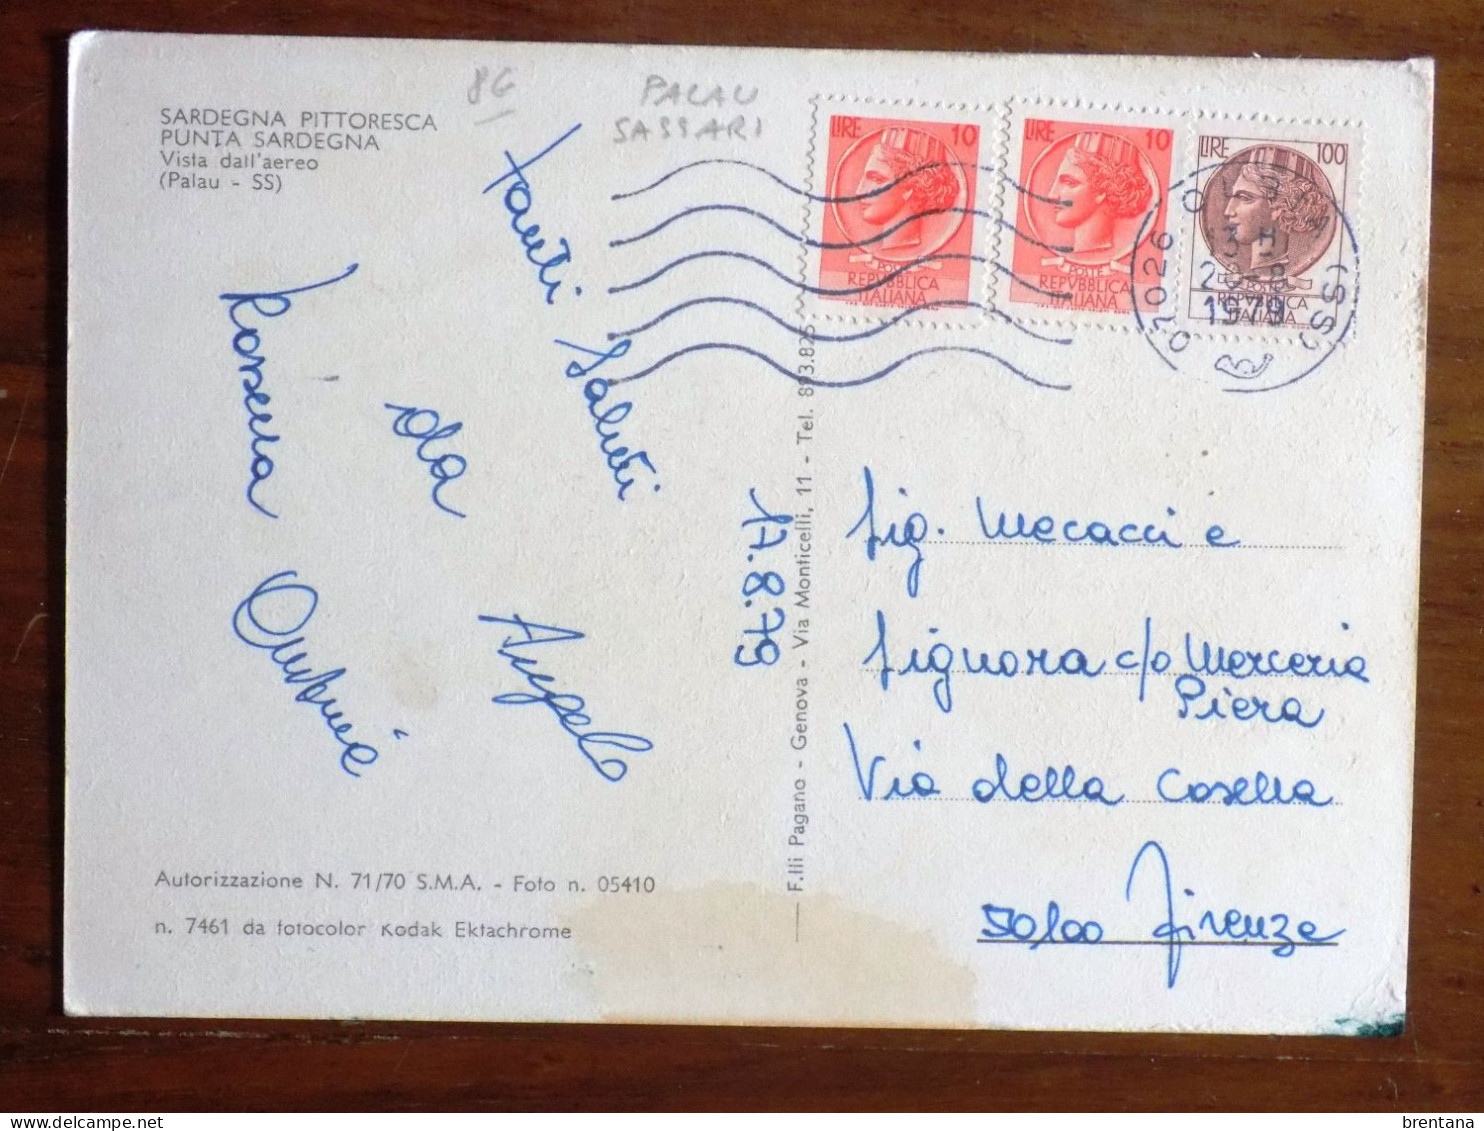 SARDEGNA PITTORESCA
PUNTA SARDEGNA
Vista dall'aereo
(Palau - SS)
86
PALAU
SASSARI
LIRE 10
POSTE
REPVBBLICA
ITALIANA
LIRE 10
POSTE
REPVBBLICA
ITALIANA
LIRE 100
POSTE
REPVBBLICA
ITALIANA
07026 OLBIA (SS)
1979
Tanti Saluti
da
Angelo
Rossella
17.8.79
F.lli Pagano - Genova - Via Monticelli, 11 - Tel. 893.825
Sig. Mecacci e
Signora c/o Merceria
Piera
Via della Casella
50100 Firenze
Autorizzazione N. 71/70 S.M.A. - Foto n. 05410
n. 7461 da fotocolor Kodak Ektachrome
brentana